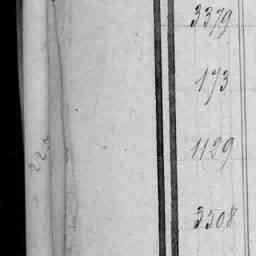 3379
173
1129
3508